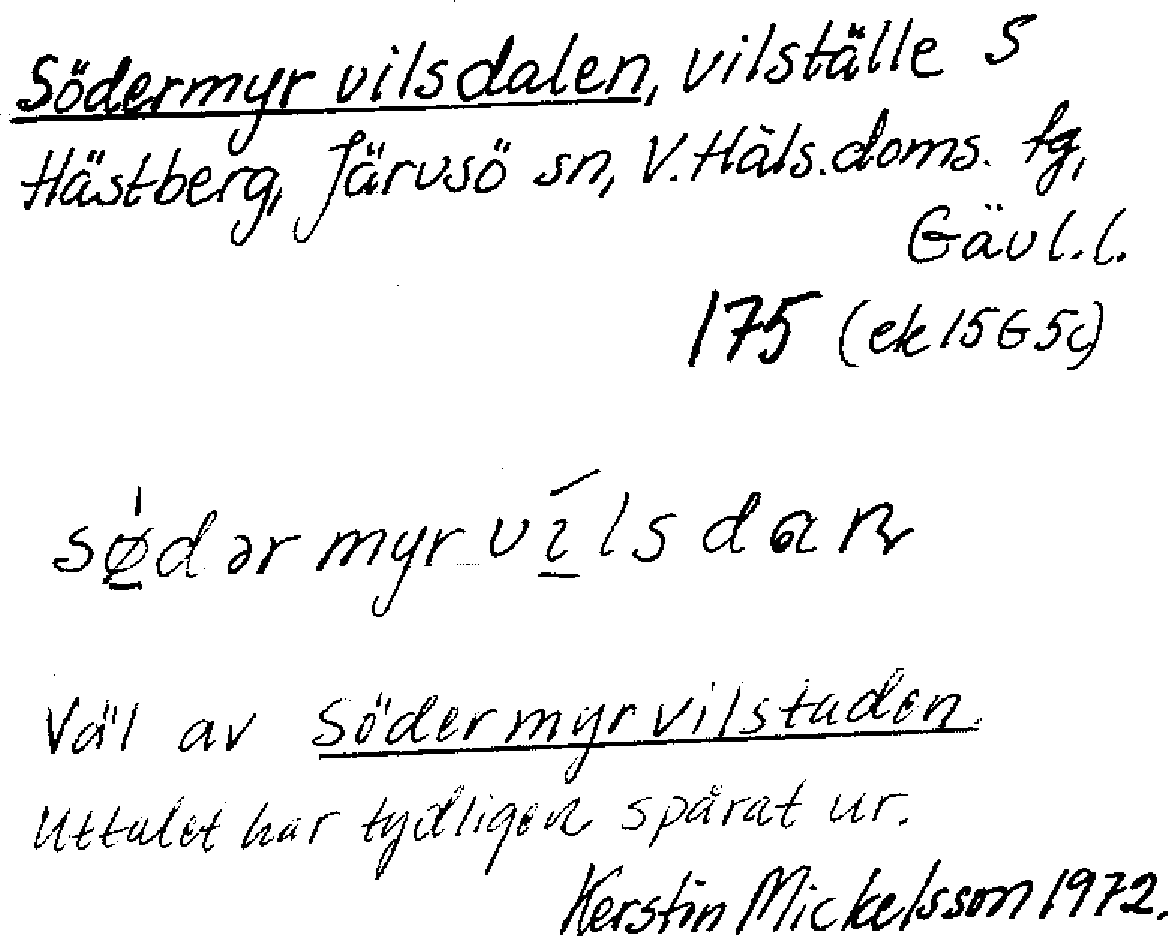 Södermyrvilsdalen, vilställe S
Hästberg, Järvsö sn, V.Häls.doms. tg,
Gävl.l.
175 (ek 15G5c)
sø̱̍dərmyrví̱lsdaɲ
Väl av Södermyrvilstaden.
Uttalet har tydligen spårat ur.
Kerstin Mickelsson 1972.